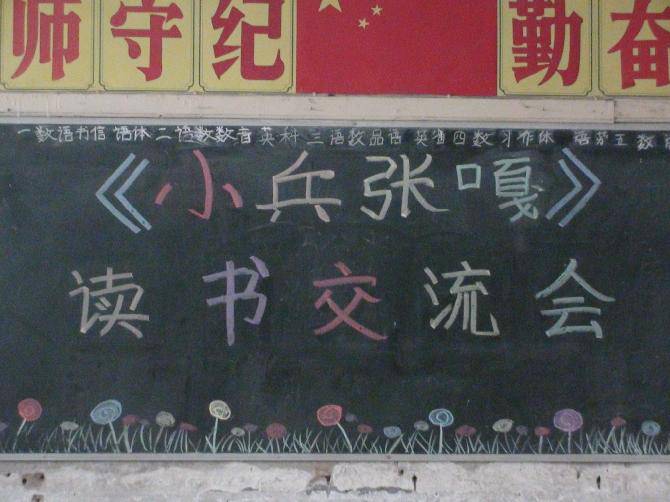 师守纪 勤奋
一数语书信 语体 二语数数音 英科 三语数品语 英 四数习作体 语 五数
《小兵张嘎》
读书交流会